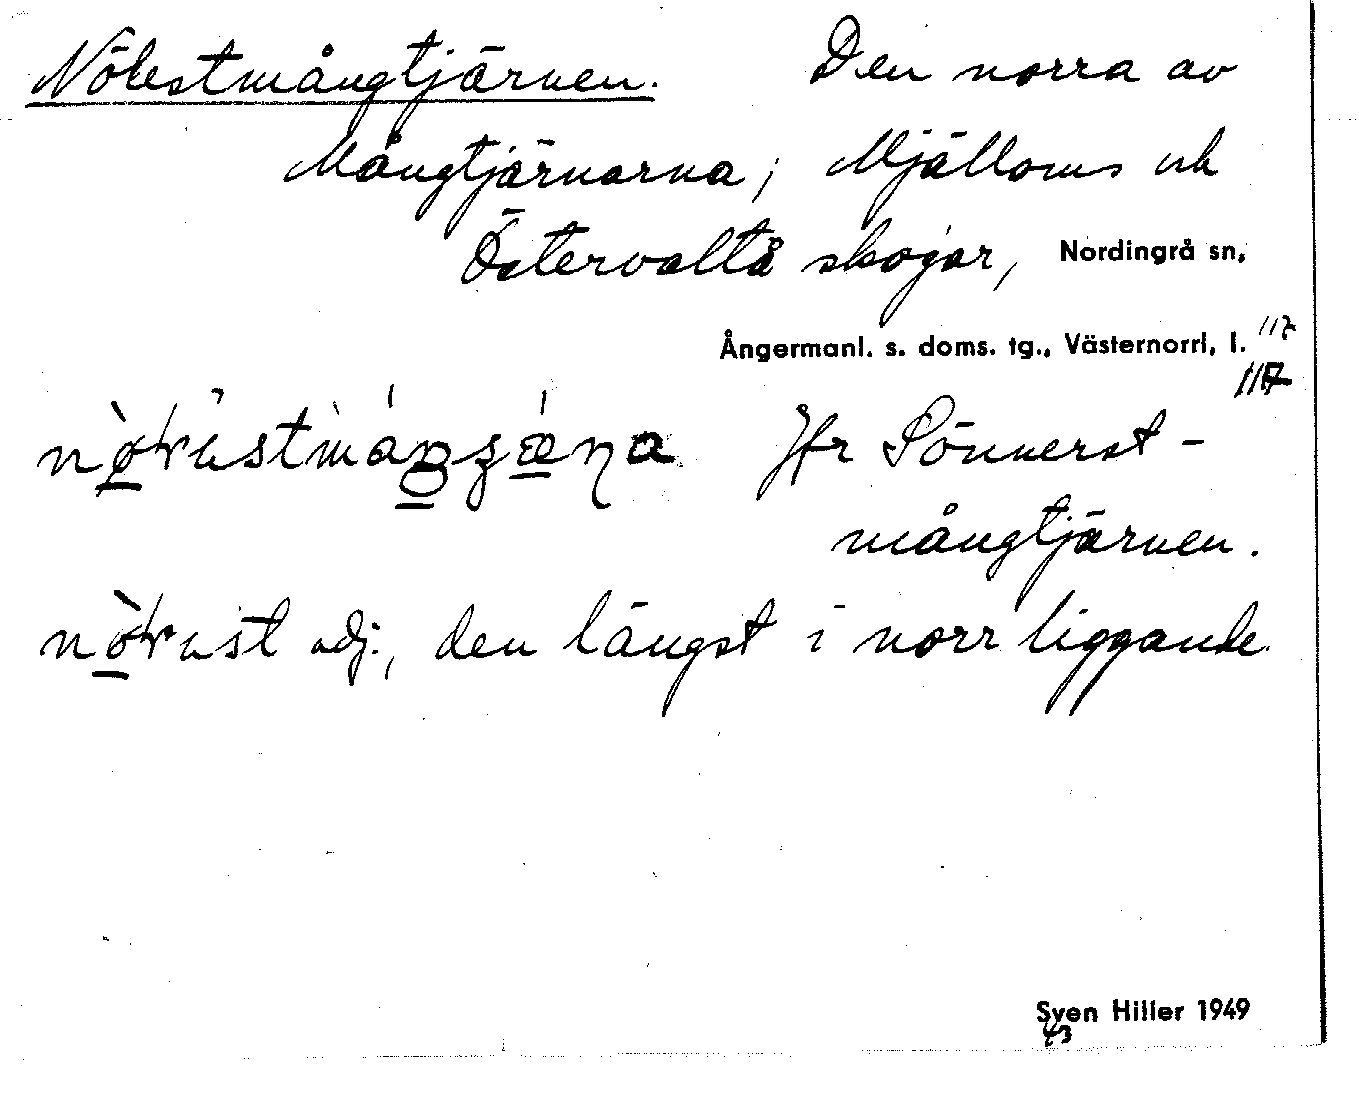 Nölestmångtjärnen. Den norra av
Mångtjärnarna; Mjälloms och
Östervalta skogar, Nordingrå sn,
Ångermanl. s. doms. tg., Västernorrl. l. 117
117
Jfr Sönnerst-
mångtjärnen.
adj., den längst i norr liggande
Sven Hiller 1949
43